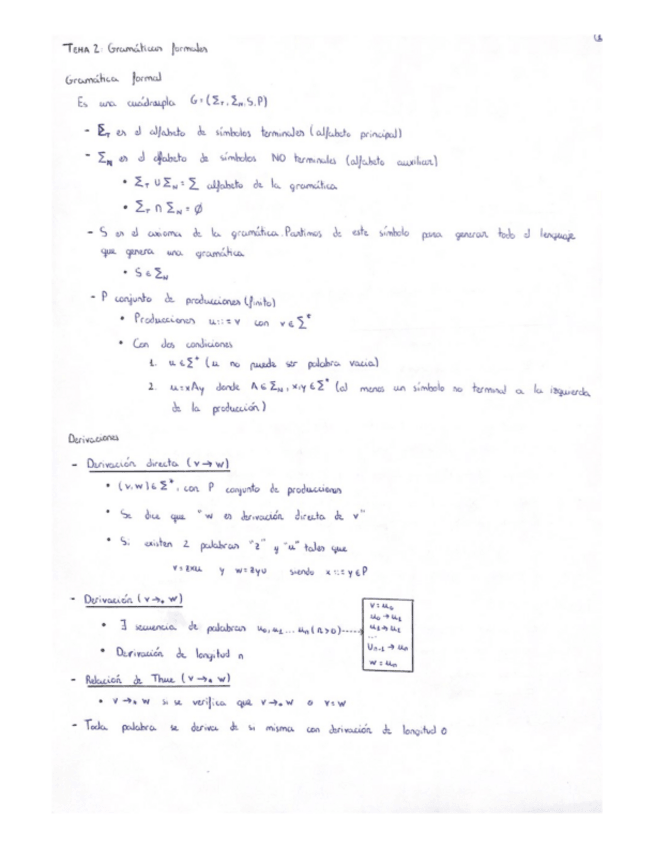 TEMA 2: Gramáticas formales
Gramática formal
Es una cuádrupla G=(Σ_T, Σ_N, S, P)
- Σ_T es el alfabeto de símbolos terminales (alfabeto principal)
- Σ_N es el alfabeto de símbolos NO terminales (alfabeto auxiliar)
• Σ_T ∪ Σ_N = Σ alfabeto de la gramática
• Σ_T ∩ Σ_N = Ø
- S es el axioma de la gramática. Partimos de este símbolo para generar todo el lenguaje
que genera una gramática
• S ∈ Σ_N
- P conjunto de producciones (finito)
• Producciones u::=v con v ∈ Σ*
• Con dos condiciones
1. u ∈ Σ⁺ (u no puede ser palabra vacía)
2. u=xAy donde A ∈ Σ_N, x,y ∈ Σ* (al menos un símbolo no terminal a la izquierda
de la producción)
Derivaciones
- Derivación directa (v → w)
• (v,w) ∈ Σ*, con P conjunto de producciones
• Se dice que "w es derivación directa de v"
• Si existen 2 palabras "z" y "u" tales que
v=zxu y w=zyu siendo x::=y ∈ P
- Derivación (v →₊ w)
• ∃ secuencia de palabras u₀, u₁ ... uₙ (n>0)
v = u₀
u₀ → u₁
u₁ → u₂
...
uₙ₋₁ → uₙ
w = uₙ
• Derivación de longitud n
- Relación de Thue (v →* w)
• v →* w si se verifica que v →₊ w o v=w
- Toda palabra se deriva de si misma con derivación de longitud 0